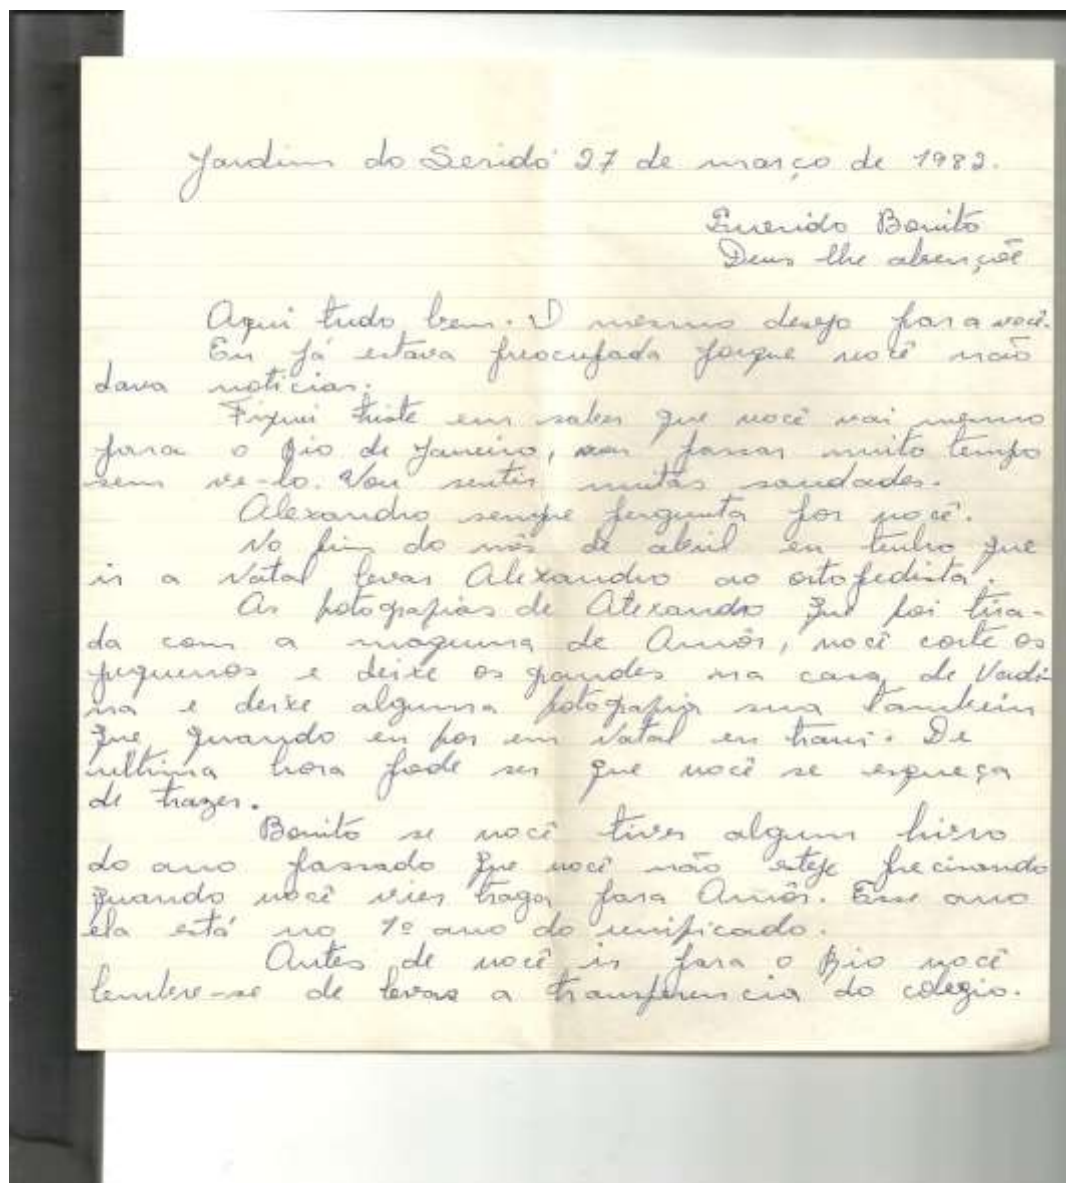 Jardim do Seridó 27 de março de 1982.
Querido Bonito
Deus lhe abençõe
Aqui tudo bem. O mesmo desejo para você.
Eu já estava preocupada porque você não
dava noticias.
Fiquei triste em saber que você vai mesmo
para o Rio de Janeiro, vou passar muito tempo
sem ve-lo. Vou sentir muitas saudades.
Alexandro sempre pergunta por você.
No fim do mês de abril eu tenho que
ir a Natal levar Alexandro ao ortopedista.
As fotografias de Alexandro que foi tira-
da com a maquina de Amôr, você corte os
pequenos e deixe os grandes na casa de Valdi-
na e deixe alguma fotografia sua também
que quando eu for em Natal eu trarei. De
ultima hora pode ser que você se esqueça
de trazer.
Bonito se você tiver algum livro
do ano passado que você não esteje precisando
quando você vier traga para Amôr. Esse ano
ela está no 1º ano do unificado.
Antes de você ir para o Rio você
lembre-se de levar a transferencia do colegio.